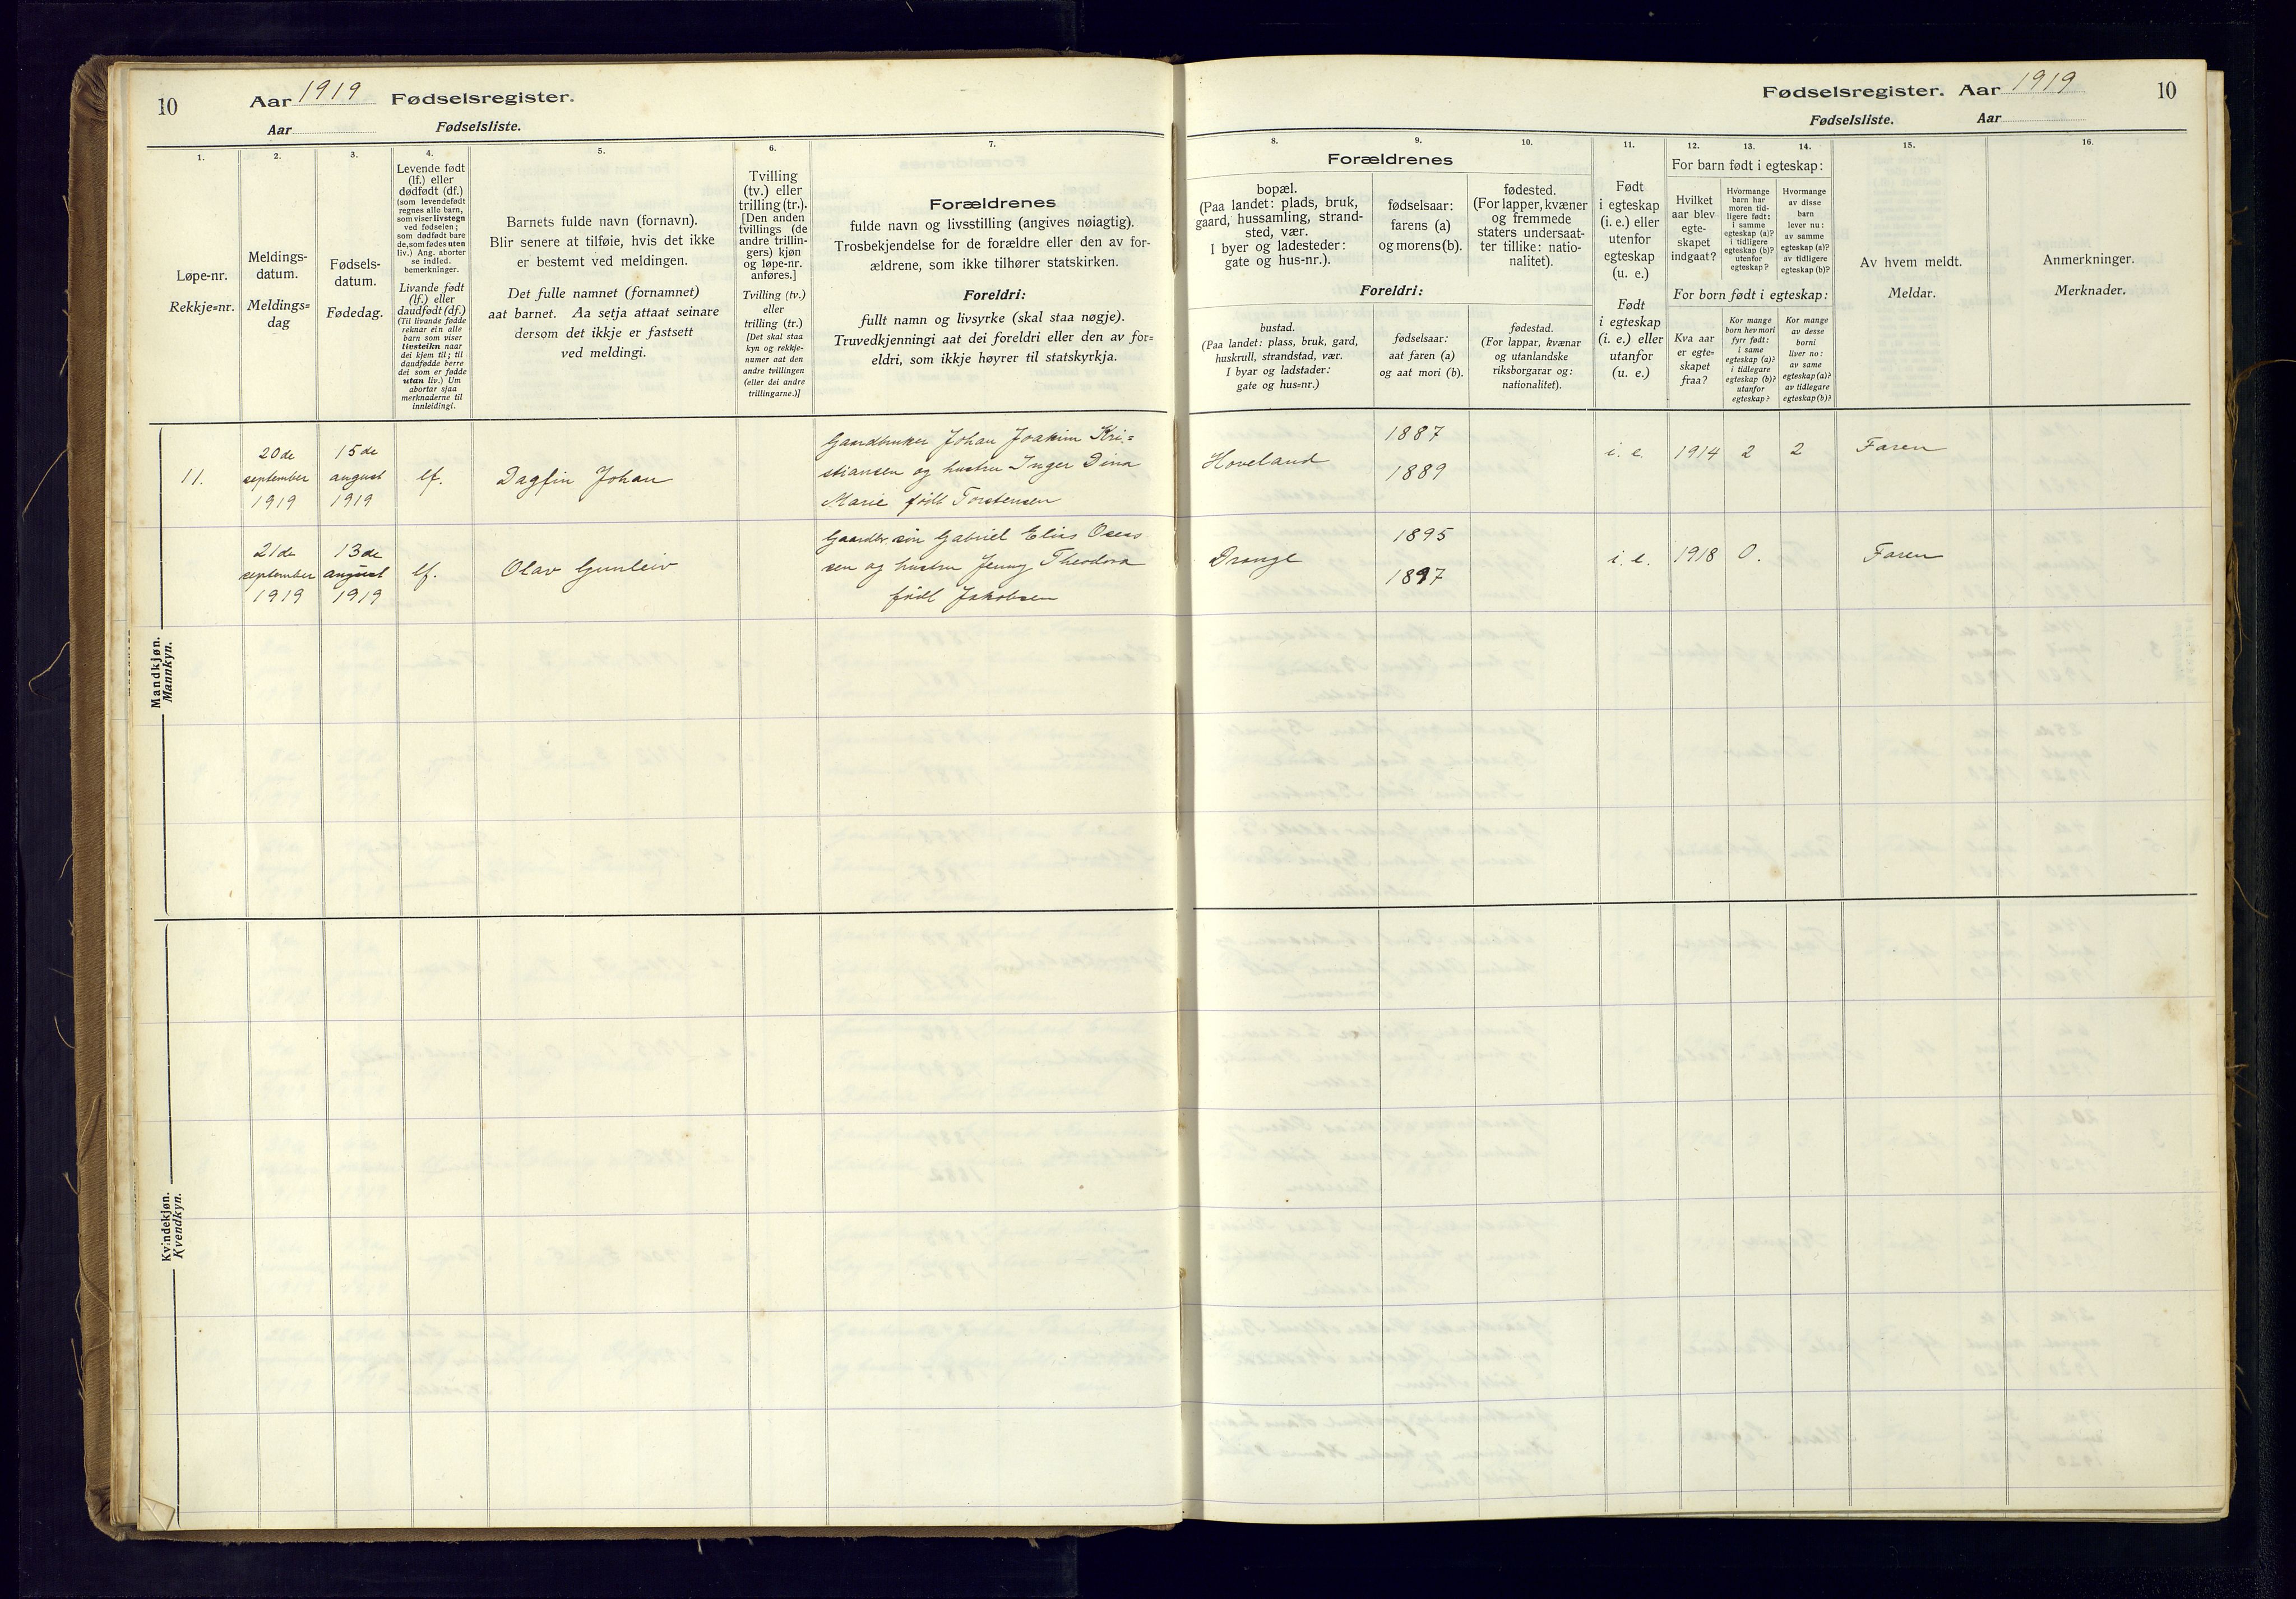 10
Aar 1919 Fødselsregister.
Aar Fødselsliste.
1.
Løpe-nr.
Rekkje=nr.
2.
Meldings-
datum.
Meldings=
dag
3.
Fødsels-
datum.
Fødedag.
4.
Levende født
(lf.) eller
dødfødt (df.)
(som levendefødt
regnes alle barn,
som viser livstegn
ved fødselen;
som dødfødt bare
de, som fødes uten
liv.) Ang. aborter
se indled.
bemerkninger.
Livande født
(lf.) eller
daudfødt (df.)
(Til livande fødde
reknar ein alle
barn som viser
livsteikn naar
dei kjem til; til
daudfødde berre
dei som er fødde
utan liv.) Um
abortar sjaa
merknaderne til
innleidingi.
5.
Barnets fulde navn (fornavn).
Blir senere at tilføie, hvis det ikke
er bestemt ved meldingen.
Det fulle namnet (fornamnet)
aat barnet. Aa setja attaat seinare
dersom det ikkje er fastsett
ved meldingi.
6.
Tvilling
(tv.) eller
trilling (tr.).
[Den anden
tvillings (de
andre trillin-
gers) kjøn
og løpe-nr.
anføres.]
Tvilling (tv.)
eller
trilling (tr.)
[Det skal staa
kyn og rekkje-
numer aat den
andre tvillingen
(eller dei andre
trillingarne.)]
7.
Forældrenes
fulde navn og livsstilling (angives nøiagtig).
Trosbekjendelse for de forældre eller den av for-
ældrene, som ikke tilhører statskirken.
Foreldri:
fullt namn og livsyrke (skal staa nøgje).
Truvedkjenningi aat dei foreldri eller den av for=
eldri, som ikkje høyrer til statskyrkja.
Mandkjøn.
Mannkyn.
11.
20de
september
1919
15de
august
1919
lf.
Dagfin Johan
Gaardbruker Johan Joakim Kri=
stiansen og hustru Inger Dina
Marie født Torstensen
21de
september
1919
13de
august
1919
lf.
Olav Gunleiv
Gaardbr. søn Gabriel Elias
sen og hustru Jenny Theodora
født Jakobsen
Kvindekjøn.
Kvendkyn.
Fødselsregister. Aar 1919
10
Fødselsliste. Aar
8.
Forældrenes
bopæl.
(Paa landet: plads, bruk,
gaard, hussamling, strand-
sted, vær.
I byer og ladesteder:
gate og hus-nr.).
9.
fødselsaar:
farens (a)
og morens (b).
10.
fødested.
(For lapper, kvæner
og fremmede
staters undersaat-
ter tillike: natio-
nalitet).
Foreldri:
bustad.
(Paa landet: plass, bruk, gard,
huskrull, strandstad, vær.
I byar og ladstader:
gate og hus=nr.)
fødselsaar:
aat faren (a)
og aat mori (b).
fødestad.
(For lappar, kvænar
og utanlandske
riksborgarar og:
nationalitet).
11.
Født
i egteskap
(i. e.) eller
utenfor
egteskap
(u. e.)
Født
i egteskap
(i. e.) eller
utanfor
(u. e.)
12.
13.
14.
For barn født i egteskap:
Hvilket
aar blev
egte-
skapet
indgaat?
Hvormange
barn har
moren tid-
ligere født:
i samme
egteskap (a)?
i tidligere
egteskap (b)?
utenfor
egteskap?
Hvormange
av disse
barn
lever nu:
av samme
egteskap (a)?
av tidligere
egteskap (b)?
For born født i egteskap:
Kva aar
er egte=
skapet
fraa?
Kor mange
born hev mori
fyrr født:
i same
egteskap (a)?
i tidlegare
egteskap (b)?
utanfor
egteskap?
Kor mange
av desse
borni
liver no:
av same
egteskap (a)?
av tidlegare
egteskap (b)?
15.
Av hvem meldt.
Meldar.
16.
Anmerkninger.
Merknader.
Hoveland
1887
1889
i. e. 1914 2 2 Faren
Drange
1895
1897
i. e. 1918 0. Faren